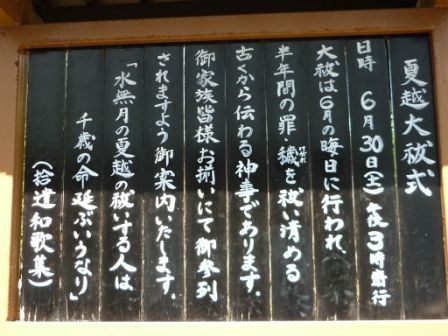 夏越大祓式
日時 6月30日(土)午後3時斎行
大祓は6月の晦日に行われ、
半年間の罪穢を祓い清める
古くから伝わる神事であります。
御家族皆様お揃いにて御参列
されますよう御案内いたします。
「水無月の夏越の祓いする人は
千歳の命延ぶいうなり」
(拾遺和歌集)